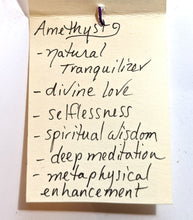 Amethyst
- natural
Tranquilizer
- divine love
- selflessness
- spiritual wisdom
- deep meditation
- metaphysical
enhancement